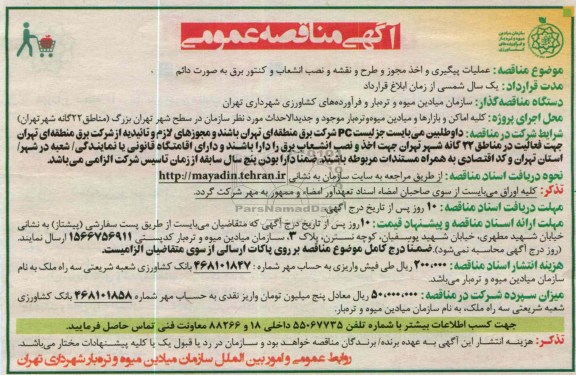 آگهی مناقصه عمومی
سازمان میادین
میوه و تره بار
و فرآورده‌های
کشاورزی
موضوع مناقصه: عملیات پیگیری و اخذ مجوز و طرح و نقشه و نصب انشعاب و کنتور برق به صورت دائم
مدت قرارداد: یک سال شمسی از زمان ابلاغ قرارداد
دستگاه مناقصه‌گذار: سازمان میادین میوه و تره‌بار و فرآورده‌های کشاورزی شهرداری تهران
محل اجرای پروژه: کلیه اماکن و بازارها و میادین میوه‌وتره‌بار موجود و جدیدالاحداث مورد نظر سازمان در سطح شهر تهران بزرگ (مناطق ۲۲گانه شهر تهران)
شرایط شرکت در مناقصه: داوطلبین می‌بایست جز لیست PC شرکت برق منطقه‌ای تهران باشند و مجوزهای لازم و تائیدیه از شرکت برق منطقه‌ای تهران
جهت فعالیت در مناطق ۲۲ گانه شهر تهران جهت اخذ و نصب انشعاب برق را دارا باشند و دارای اقامتگاه قانونی یا نمایندگی/ شعبه در شهر/
استان تهران و کد اقتصادی به همراه مستندات مربوطه باشند. ضمنا دارا بودن پنج سال سابقه از زمان تاسیس شرکت الزامی می‌باشد.
نحوه دریافت اسناد مناقصه: از طریق مراجعه به سایت سازمان به نشانی http://mayadin.tehran.ir
تذکر: کلیه اوراق می‌بایست از سوی صاحبان امضاء اسناد تعهدآور امضاء و ممهور به مهر شرکت گردد.
مهلت دریافت اسناد مناقصه: ۱۰ روز پس از تاریخ درج آگهی.
مهلت ارائه اسناد مناقصه و پیشنهاد قیمت: ۱۰ روز پس از تاریخ درج آگهی که متقاضیان می‌بایست از طریق پست سفارشی (پیشتاز) به نشانی
خیابان شهید مطهری، خیابان شهید یوسفیان، کوچه نسترن، پلاک ۳، سازمان میادین میوه و تره‌بار کدپستی ۱۵۶۶۷۵۶۹۱۱ ارسال نمایند.
(روز درج آگهی محاسبه نمی‌شود) ضمنا درج کامل موضوع مناقصه بر روی پاکات ارسالی از سوی متقاضیان الزامیست.
هزینه انتشار اسناد مناقصه: ۲۰۰،۰۰۰ ریال طی فیش واریزی به حساب مهر شماره: ۴۶۸۱۰۱۸۴۷ بانک کشاورزی شعبه شریعتی سه راه ملک به نام
سازمان میادین میوه و تره‌بار می‌باشد.
میزان سپرده شرکت در مناقصه: ۵۰،۰۰۰،۰۰۰ ریال معادل پنج میلیون تومان واریز نقدی به حساب مهر شماره ۴۶۸۱۰۱۸۵۸ بانک کشاورزی
شعبه شریعتی سه راه ملک، به نام سازمان میادین میوه و تره‌بار.
جهت کسب اطلاعات بیشتر با شماره تلفن ۵۵۰۶۷۷۳۵ داخلی ۱۸ و ۸۸۲۶۶ معاونت فنی تماس حاصل فرمایید.
تذکر: هزینه انتشار این آگهی به عهده برنده/ برندگان مناقصه خواهد بود و سازمان در رد یا قبول یک یا کلیه پیشنهادات مختار می‌باشد.
روابط عمومی و امور بین الملل سازمان میادین میوه و تره‌بار شهرداری تهران